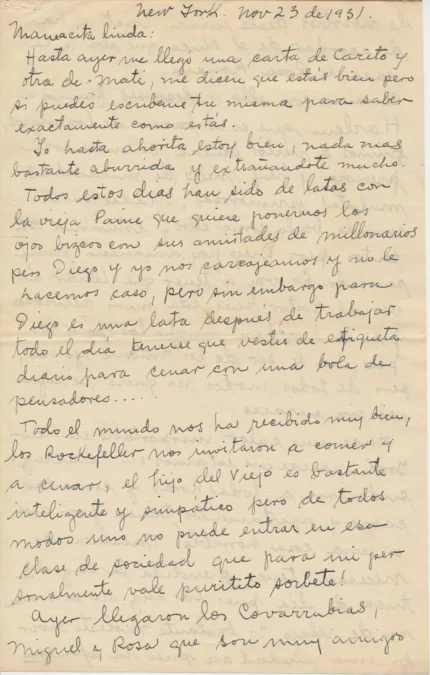 New York. Nov 23 de 1931.
Mamacita linda:
Hasta ayer me llegó una carta de Carito y
otra de Mati, me dicen que estás bien pero
si puedes escribeme tu misma para saber
exactamente como estás.
Yo hasta ahorita estoy bien, nada mas
bastante aburrida y extrañandote mucho.
Todos estos dias han sido de latas con
la vieja Paine que quiere ponernos los
ojos bizcos con sus amistades de millonarios
pero Diego y yo nos carcajeamos y no le
hacemos caso, pero sin embargo para
Diego es una lata después de trabajar
todo el día tenerse que vestir de etiqueta
diario para cenar con una bola de
pensadores.....
Todo el mundo nos ha recibido muy bien,
los Rockefeller nos invitaron a comer y
a cenar, el hijo del Viejo es bastante
inteligente y simpático pero de todos
modos uno no puede entrar en esa
clase de sociedad que para mi per
sonalmente vale puritito sorbete!
Ayer llegaron los Covarrubias,
Miguel y Rosa que son muy amigos